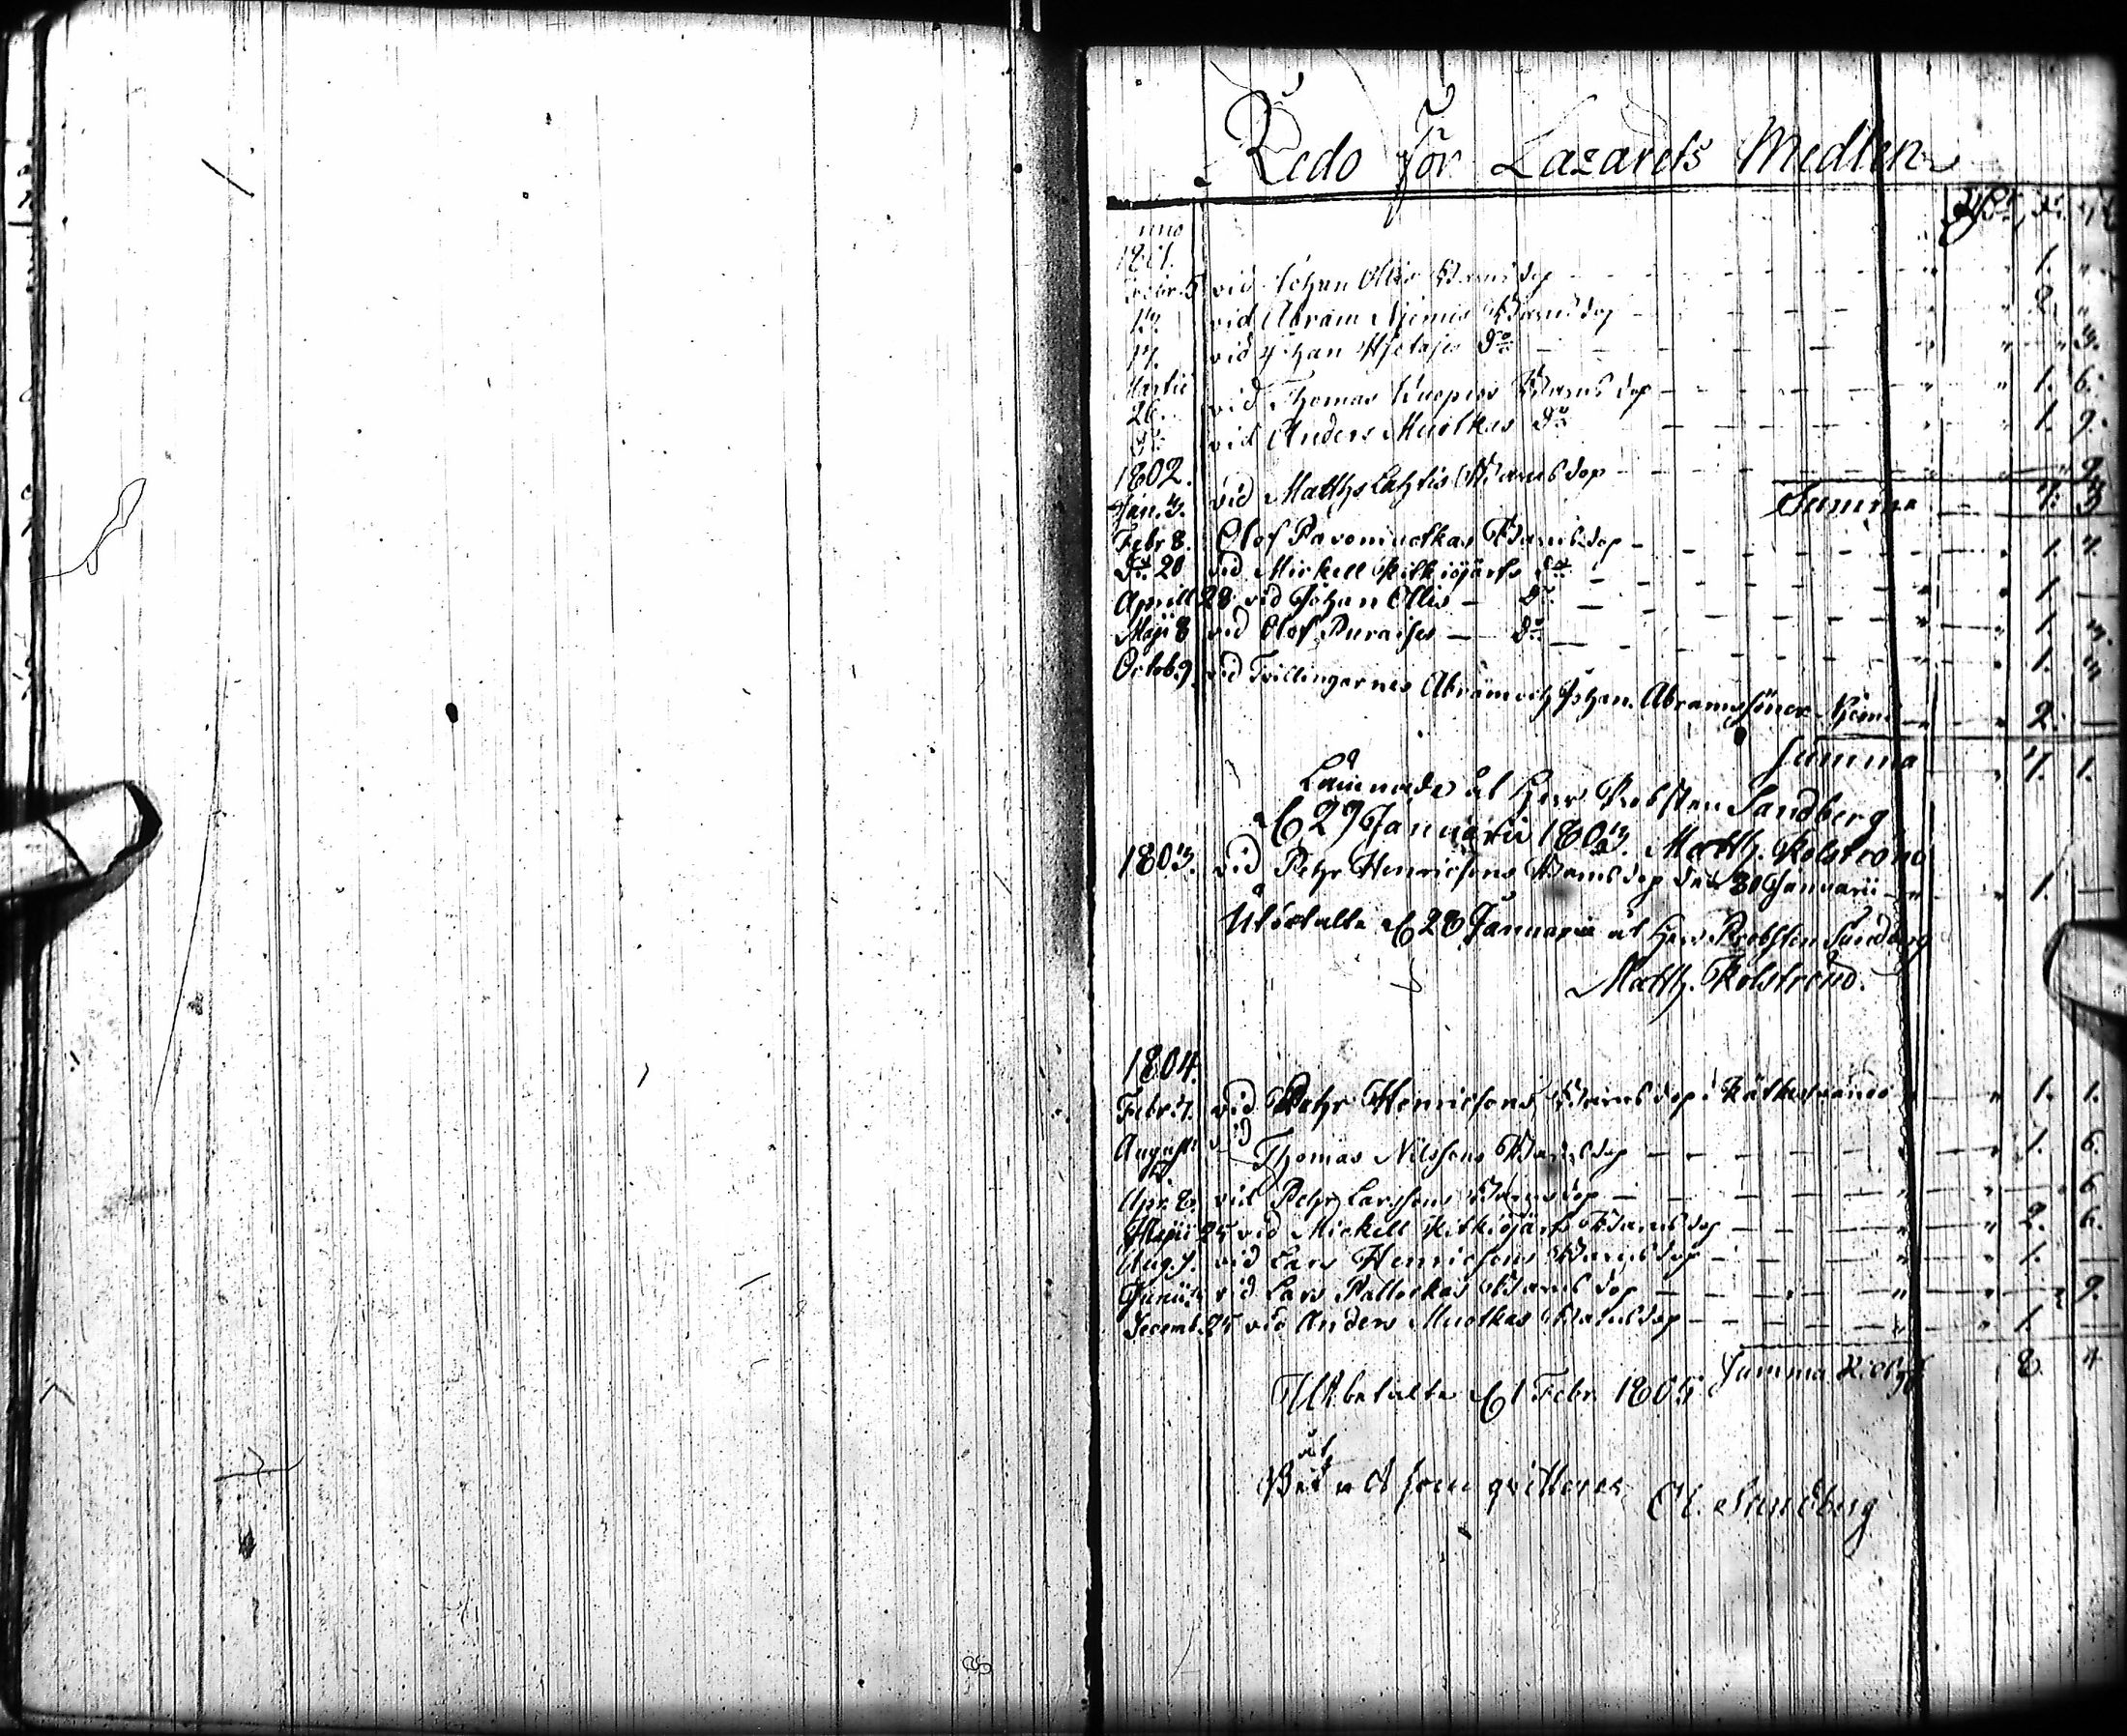 Redo för Lazarets Medlen
Rdr. sk. rst
Anno
1801.
Febr. 5 vid Johan Ollis Barnsdop - - - " 1. "
13. vid Abram Niemis Barnsdop - - - " 2. "
17. vid Johan do - - - " " 3.
Martii vid Thomas Kuopios Barnsdop - - - " 1. 6.
26.
do vid Anders Muotkas do - - - " 1. 9.
1802.
Jan. 3. vid Matths Lahtis Barnsdop - - - " " 9.
Summa - 7. 3
Febr 8. Olof Pavomuotkas Barnsdop - - - 1. 7.
do 20 vid Mickell Pitkiöjärfs do - - - " 1 —
Aprill 28 vid Johan Ollis - do - - - " 1. 3.
Maji 8 vid Olof Puraises - do - - - " 1. 3
Octob. 9. vid Tvillingarnes Abram och Johan Abramssöner Niemi - " 2. —
Summa - " 7. 1.
Låmnade åt Herr Probsten Sandberg
d 27 Januarii 1803. Matth. Kolström
1803. vid Pehr Henricsons Barnsdop den 30 Januarii - " 1. —
Utbetalte d 28 Januarii åt Herr Probsten Sandberg
Matth. Kolström.
1804.
Febr. 7. vid Pehr Henricsons Barnsdop i Kätkesuando " " 1. 1.
Augusti vid
Thomas Nilssons Barnsdop - - - 1. 6.
Apr. 8. vid Pehr Larssons Barnsdop - - - " 6
Maji 25 vid Mickell Pitkiöjärfs Barnsdop - - - " 2. 6.
Aug. 7. vid Lars Henricsons Barnsdop - - - " 1. —
Junii vid Lars Palloikas Barnsdop - - - " 9.
Decemb. 25 vid Anders Muotkas Barnsdop - - - " 1. —
Summa 8 4
Utbetalte d 1 Febr. 1805
åt
som qvitteras Sandberg